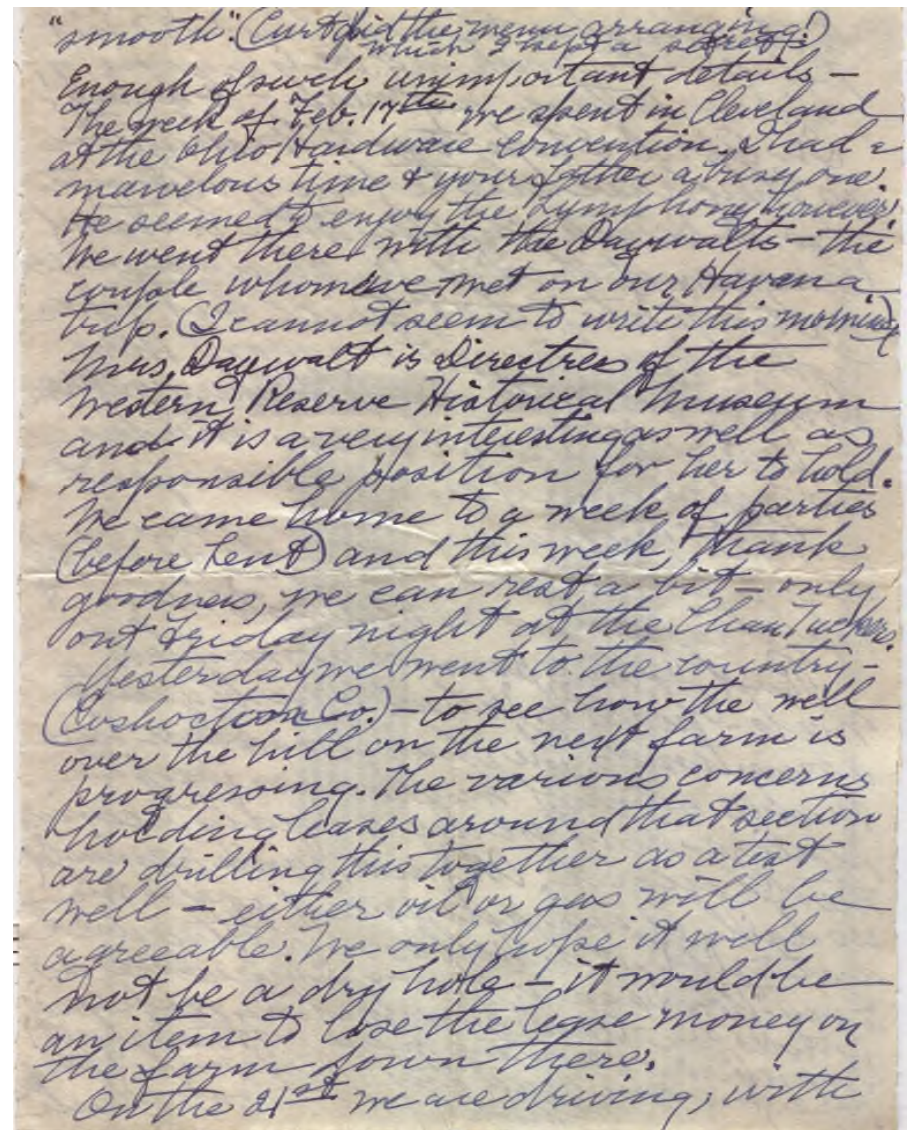 "smooth". (Curt did the menu arranging!)
which I kept a secret.
Enough of such unimportant details —
The week of Feb. 17th we spent in Cleveland
at the Ohio Hardware Convention. I had a
marvelous time & your father a busy one.
He seemed to enjoy the Symphony, however!
We went there with the Daywalts — the
couple whom we met on our Havana
trip. (I cannot seem to write this morning)
Mrs. Daywalt is Directress of the
Western Reserve Historical Museum
and it is a very interesting as well as
responsible position for her to hold.
We came home to a week of parties
(before Lent) and this week, thank
goodness, we can rest a bit — only
out Friday night at the Chan Tuckers.
Yesterday we went to the country —
(Coshocton Co.) — to see how the well
over the hill on the next farm is
progressing. The various concerns
holding leases around that section
are drilling this together as a test
well — either oil or gas will be
agreeable. We only hope it will
not be a dry hole — it would be
an item to lose the lease money on
the farm down there.
On the 21st we are driving, with